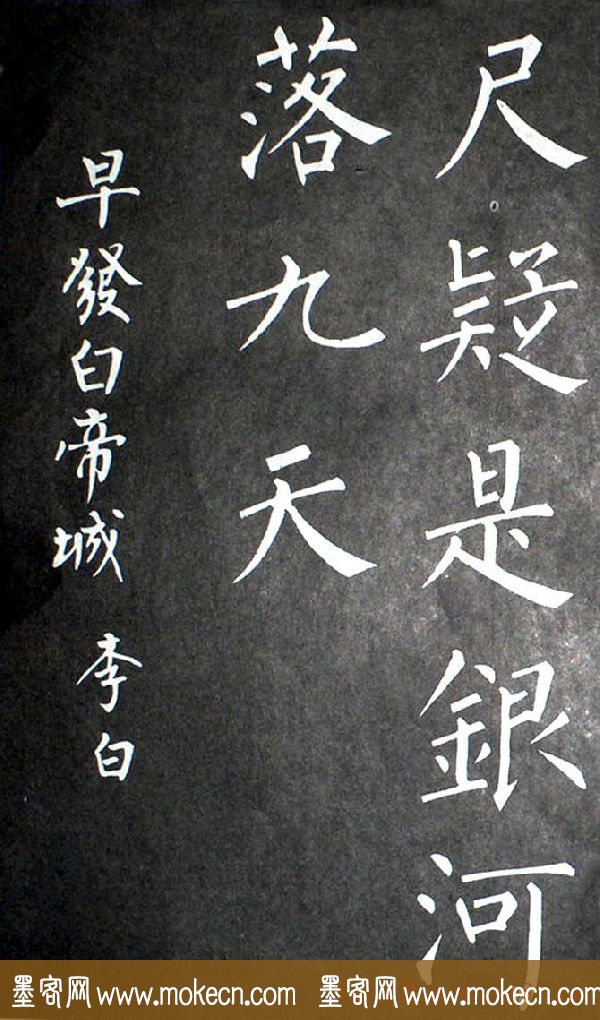 尺疑是銀河
落九天
早發白帝城 李白
墨客网 www.mokecn.com 墨客网 www.mokecn.com